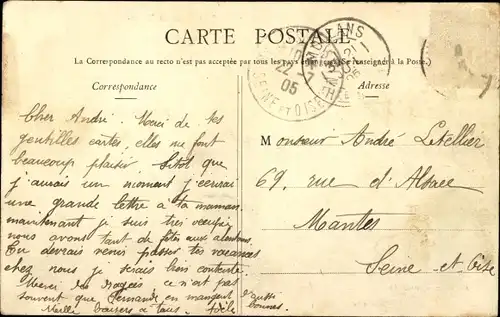 CARTE POSTALE
La Correspondance au recto n'est pas acceptée par tous les pays étrangers (Se renseigner à la Poste.)
Correspondance
Adresse
LE MANS
21
05
22
7
05
SEINE ET OISE
Cher André. Merci de tes
gentilles cartes, elles me font
beaucoup plaisir. Sitôt que
j'aurais un moment j'ecrirai
une grande lettre à ta maman
maintenant je suis très occupée
nous avons tant de fêtes aux alentours.
Tu devrais venir passer tes vacances
chez nous je serais bien contente.
Merci des dragées, ce n'est pas
souvent que Fernande en mangent
d'aussi
bonnes.
Mille baisers à tous. Adèle
Monsieur André Letellier
69, rue d'Alsace
Mantes
Seine et Oise